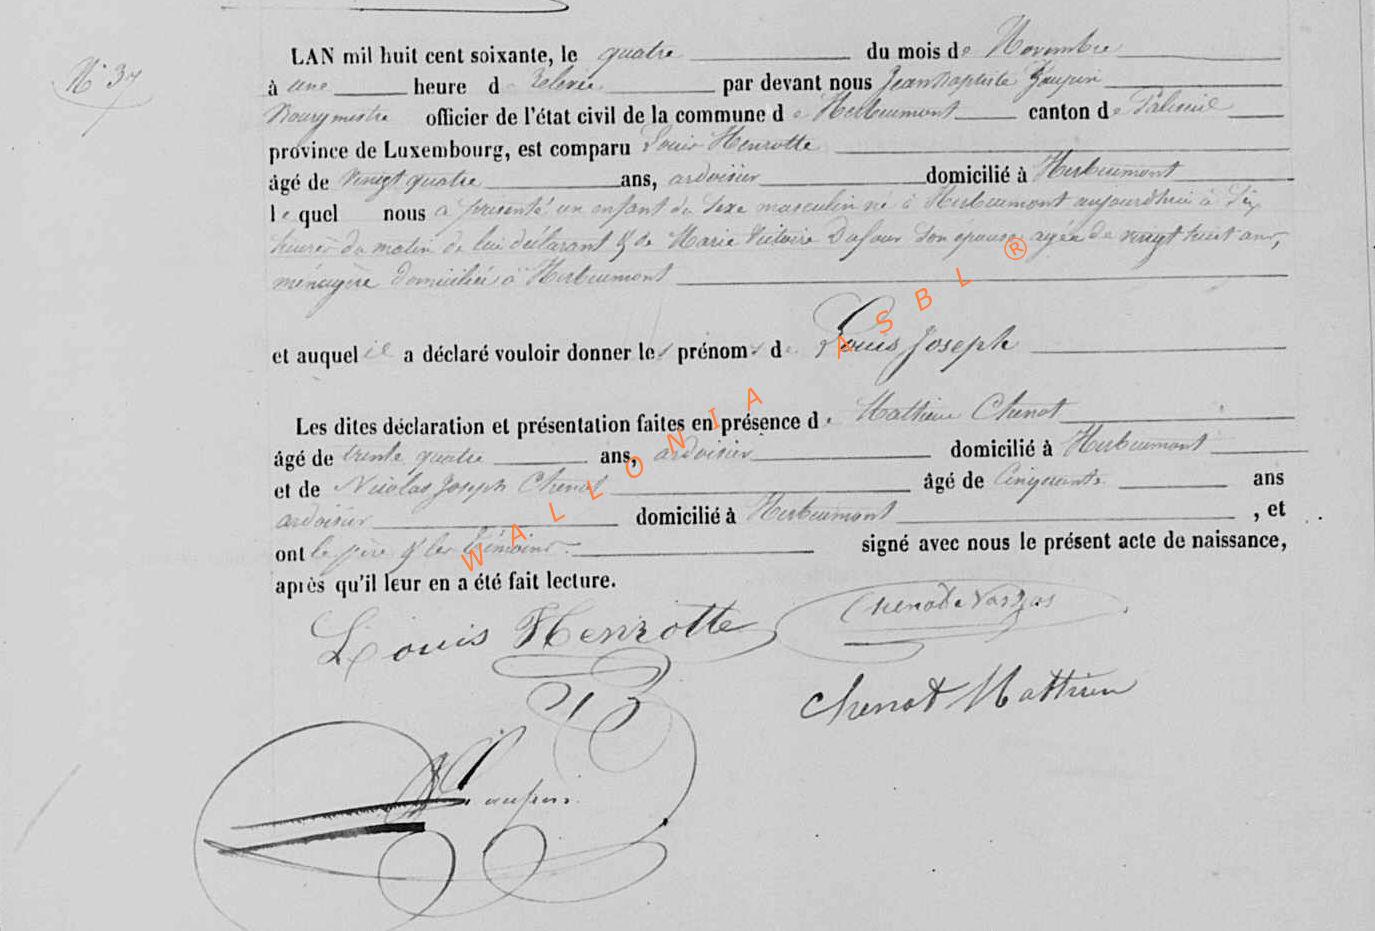 N° 37
LAN mil huit cent soixante, le quatre du mois de Novembre
à une heure de relevée par devant nous Jean Baptiste Gaupin
Bourgmestre officier de l'état civil de la commune de Herbeumont canton de Paliseul
province de Luxembourg, est comparu Louis Henrotte
âgé de vingt quatre ans, ardoisier domicilié à Herbeumont
le quel nous a présenté un enfant du sexe masculin né à Herbeumont aujourd'hui à dix
heures du matin de lui déclarant & de Marie Victoire Dufour son épouse agée de vingt huit ans,
ménagère domiciliée à Herbeumont
et auquel il a déclaré vouloir donner les prénoms de Louis Joseph
Les dites déclaration et présentation faites en présence de Mathieu Chenot
âgé de trente quatre ans, ardoisier domicilié à Herbeumont
et de Nicolas Joseph Chenot âgé de Cinquante ans
ardoisier domicilié à Herbeumont, et
ont le père & les témoins signé avec nous le présent acte de naissance,
après qu'il leur en a été fait lecture.
Louis Henrotte
Chenot
Chenot Mathieu
WALLONIA ASBL ®